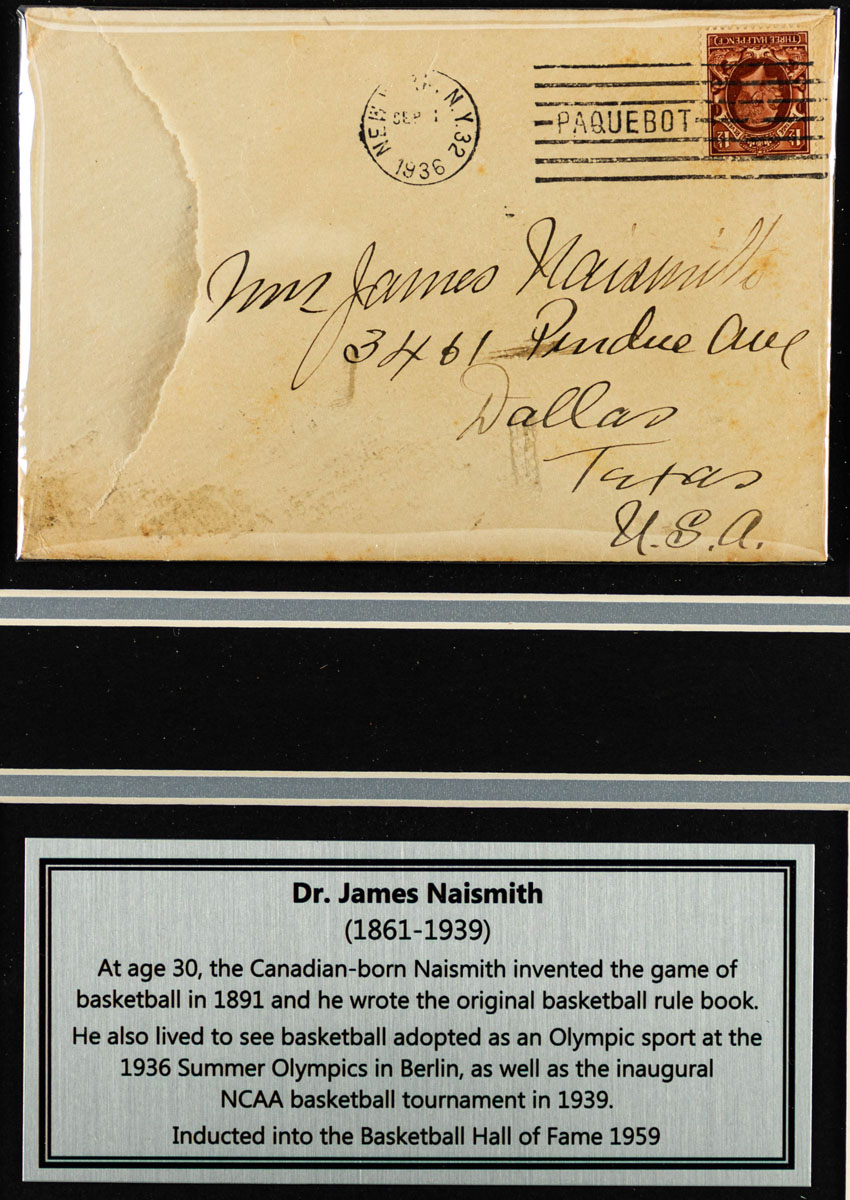 THREE HALFPENCE
NEW YORK, N.Y. 32
SEP 1
1936
PAQUEBOT
1½ 1½
Mrs James Naismith
3461 Purdue Ave
Dallas
Texas
U.S.A.
Dr. James Naismith
(1861-1939)
At age 30, the Canadian-born Naismith invented the game of
basketball in 1891 and he wrote the original basketball rule book.
He also lived to see basketball adopted as an Olympic sport at the
1936 Summer Olympics in Berlin, as well as the inaugural
NCAA basketball tournament in 1939.
Inducted into the Basketball Hall of Fame 1959